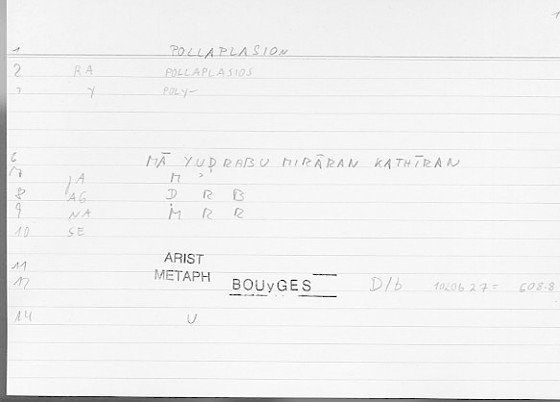 1 POLLAPLASION
2 RA POLLAPLASIOS
3 Y POLY-
6 MĀ YUḌRABU MIRĀRAN KATHĪRAN
7 JA M ʾ
8 AG Ḍ R B
9 NA M R R
10 SE
11 ARIST
METAPH
12 BOUyGES D/b 1020b27= 608.8
14 U